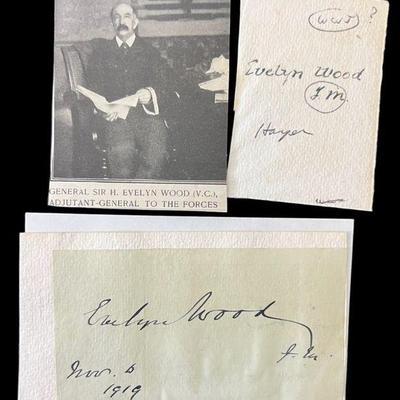 GENERAL SIR H. EVELYN WOOD (V.C.),
ADJUTANT-GENERAL TO THE FORCES
?
Evelyn Wood
F.M.
Evelyn Wood
F.M.
Nov. 6
1919